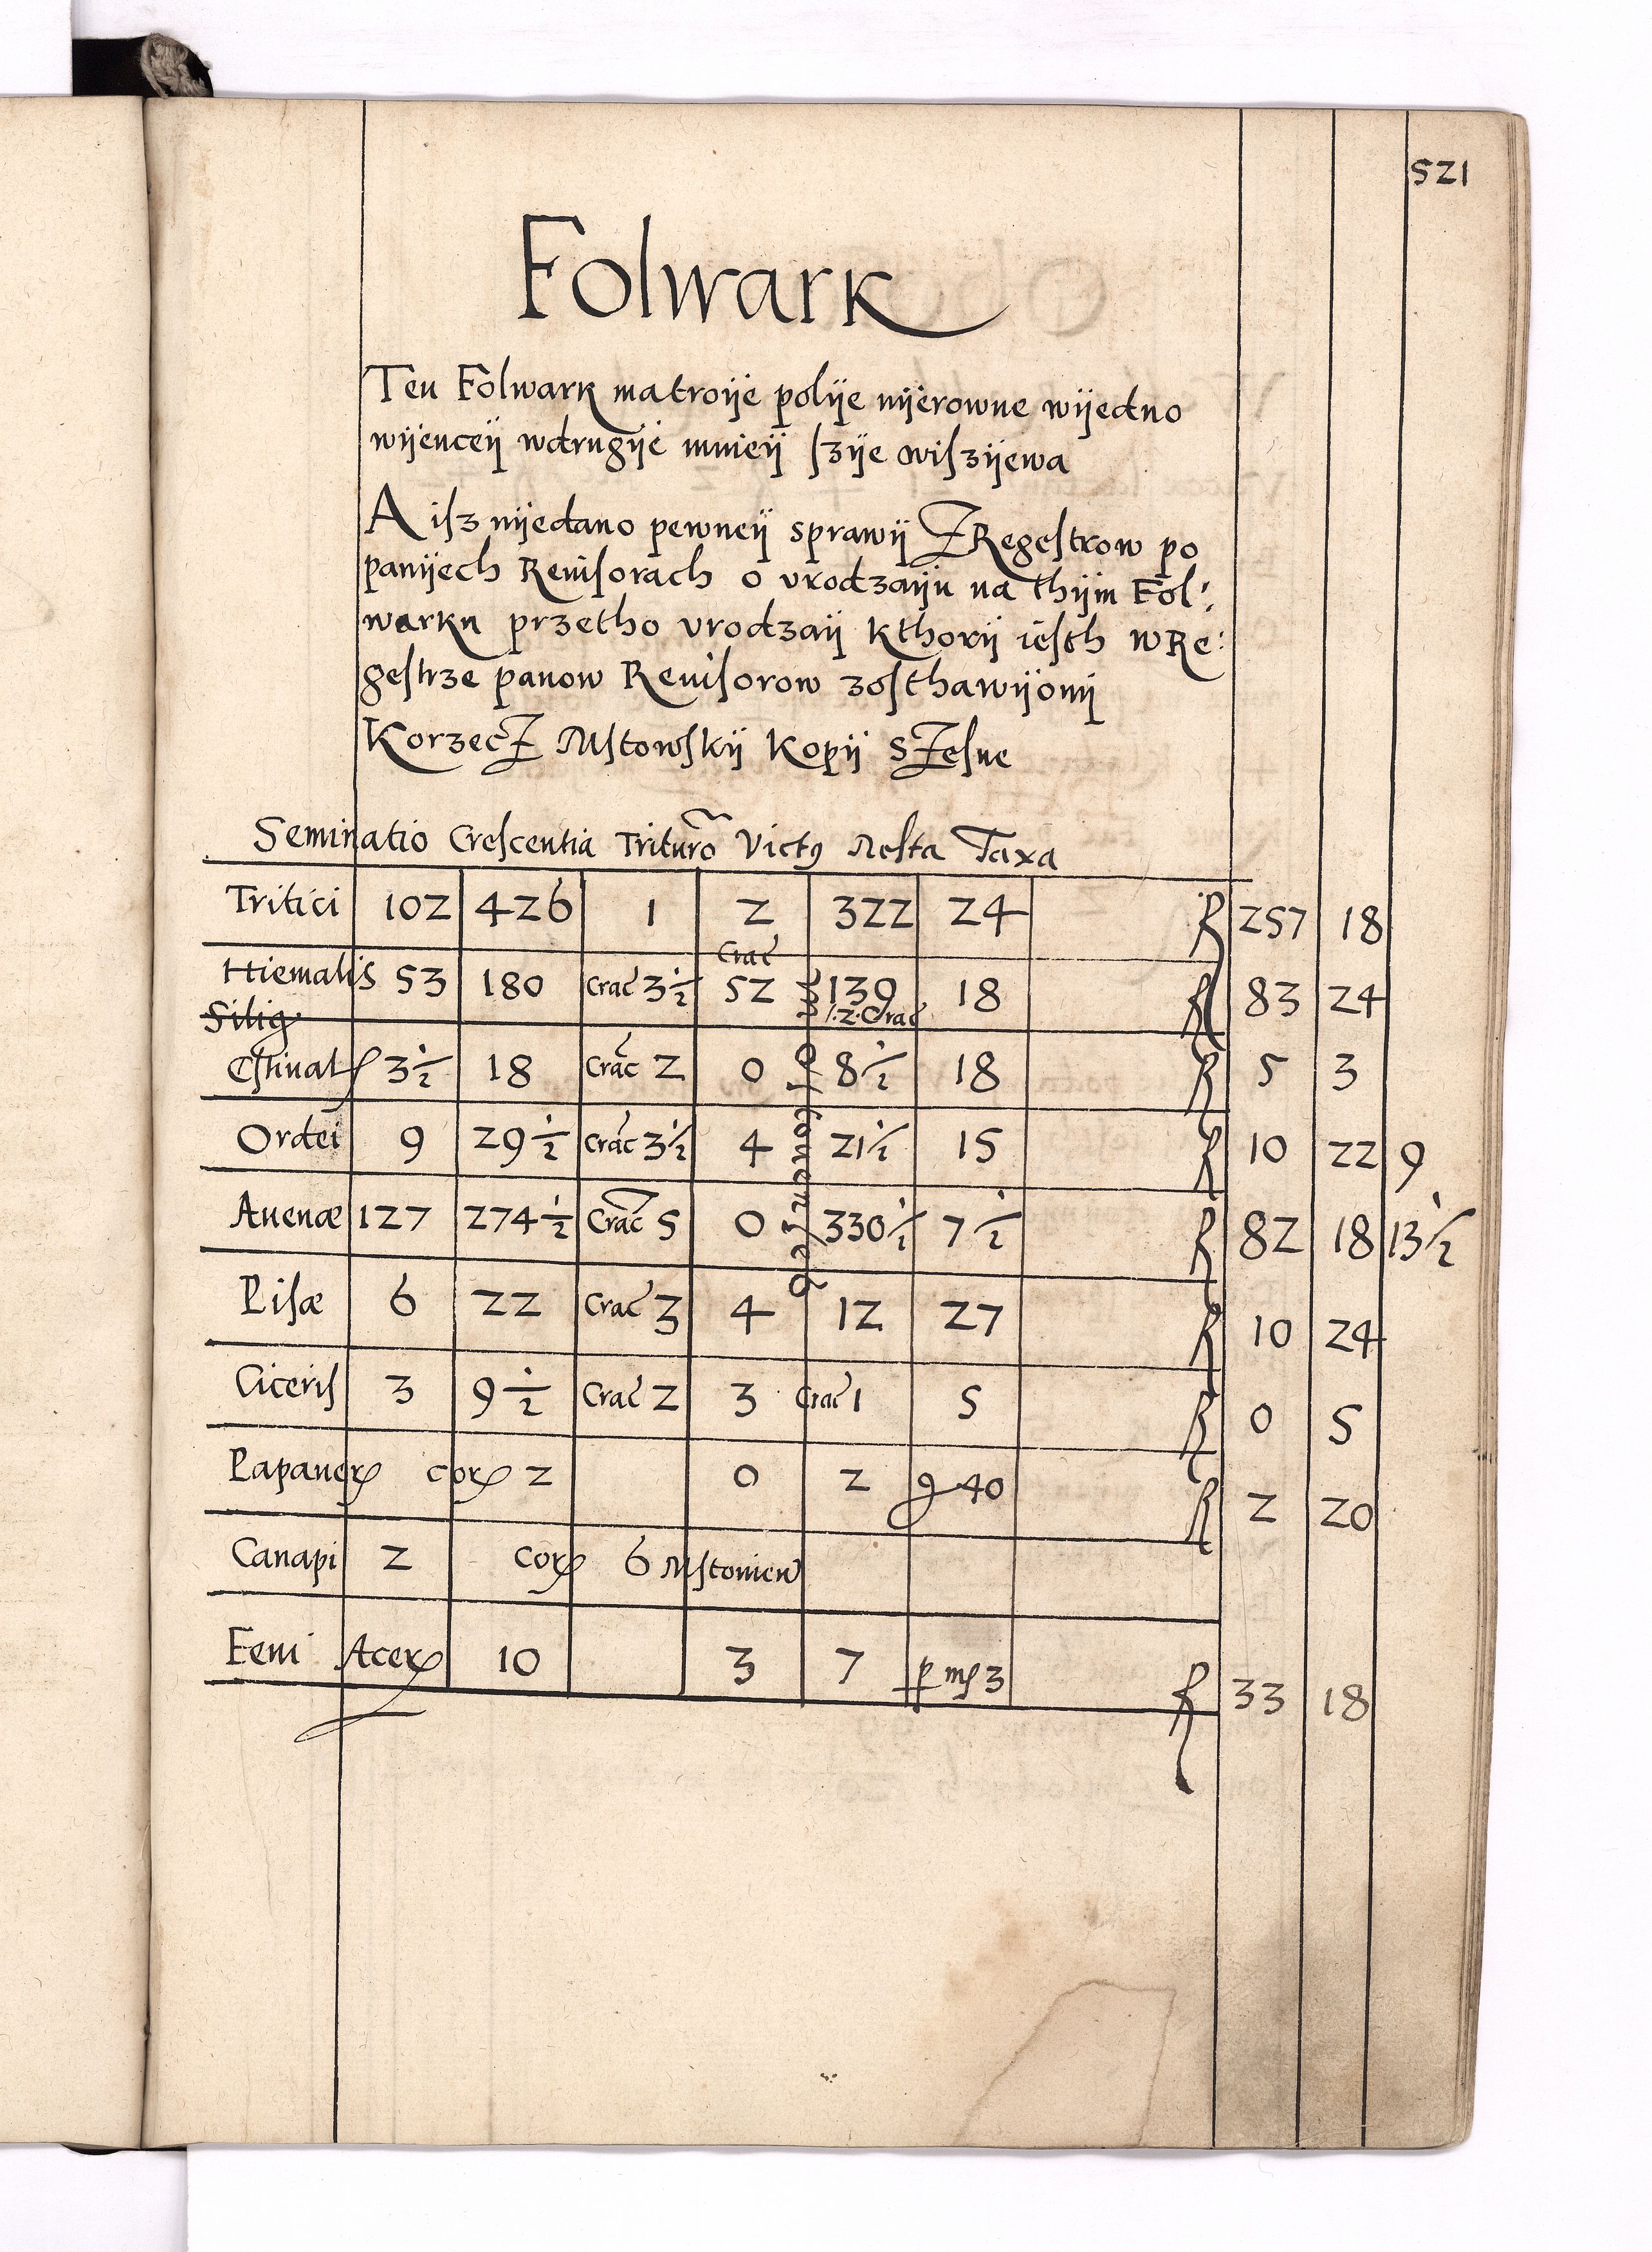 521
Folwark
Ten Folwark ma troije polije nijerowne wijedno
wijenceij wdrugije mnieij szije wiszijewa
A isz nijedano pewneij sprawij Z Regestrow po
panijech Reuisorach o vrodzaiju na thijm Fol:
warku przetho vrodzaij kthorij iesth w Re:
gestrze panow Reuisorow zosthawijonij
Korzecz Mstowskij Kopij Szesne
Seminatio Crescentia Trituro Victus Resta Taxa
Tritici 102 426 1 2 322 24 R 257 18
Hiemalis 53 180 Crac 3½ Crac 52 139 12 Crac 18 R 83 24
Silig
Estiual 3½ 18 Crac 2 0 8½ 18 R 5 3
Ordei 9 29½ Crac 3½ 4 21½ 15 R 10 22 9
Auenæ 127 274½ Crac 5 0 330½ 7½ R 82 18 13½
Pisæ 6 22 Crac 3 4 12 27 R 10 24
Ciceris 3 9½ Crac 2 3 Crac 1 5 R 0 5
Papauer cor 2 0 2 g 40 R 2 20
Canapi 2 cor 6 Mstouien
Feni Acer 10 3 7 p mr 3 R 33 18